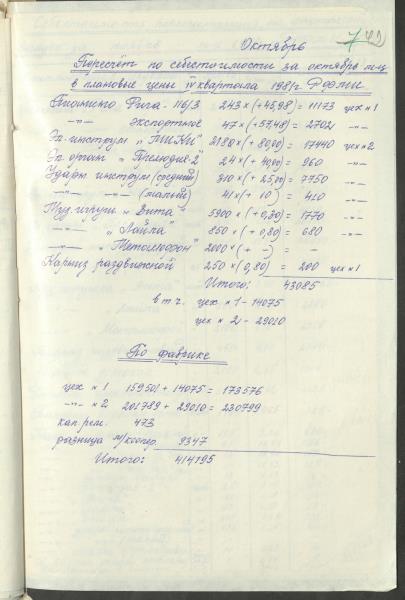 Октябрь
Пересчёт по себестоимости за октябрь м-ц
в плановые цены IV квартала 198 г РФМИ
Пианино Рига-116/3 243 × (+45,98) = 11173 цех №1
-"- экспортное 47 × (+57,48) = 2702 -"-
Эл. инструм "МИКИ" 2180 × (+ 8,00) = 17440 цех №2
Эл орган "Прелюдия-2" 24 × (+ 40,00) = 960 -"-
Ударн инструм (средний) 310 × (+ 25,00) = 7750 -"-
-"- -"- (малый) 41 × (+ 10) = 410 -"-
Муз. игруш "Вита" 5900 × (+ 0,30) = 1770 -"-
-"- "Лайла" 850 × (+ 0,80) = 680 -"-
-"- "Металлофон" 2000 × (+ –) = –
Карниз раздвижной 250 × (0,80) = 200 цех №1
Итого: 43085
в т.ч. цех №1 - 14075
цех №2 - 29010
По фабрике
цех №1 159501 + 14075 = 173576
-"- №2 201789 + 29010 = 230799
кап. рем. 473
разница м/коопер. 9347
Итого: 414195